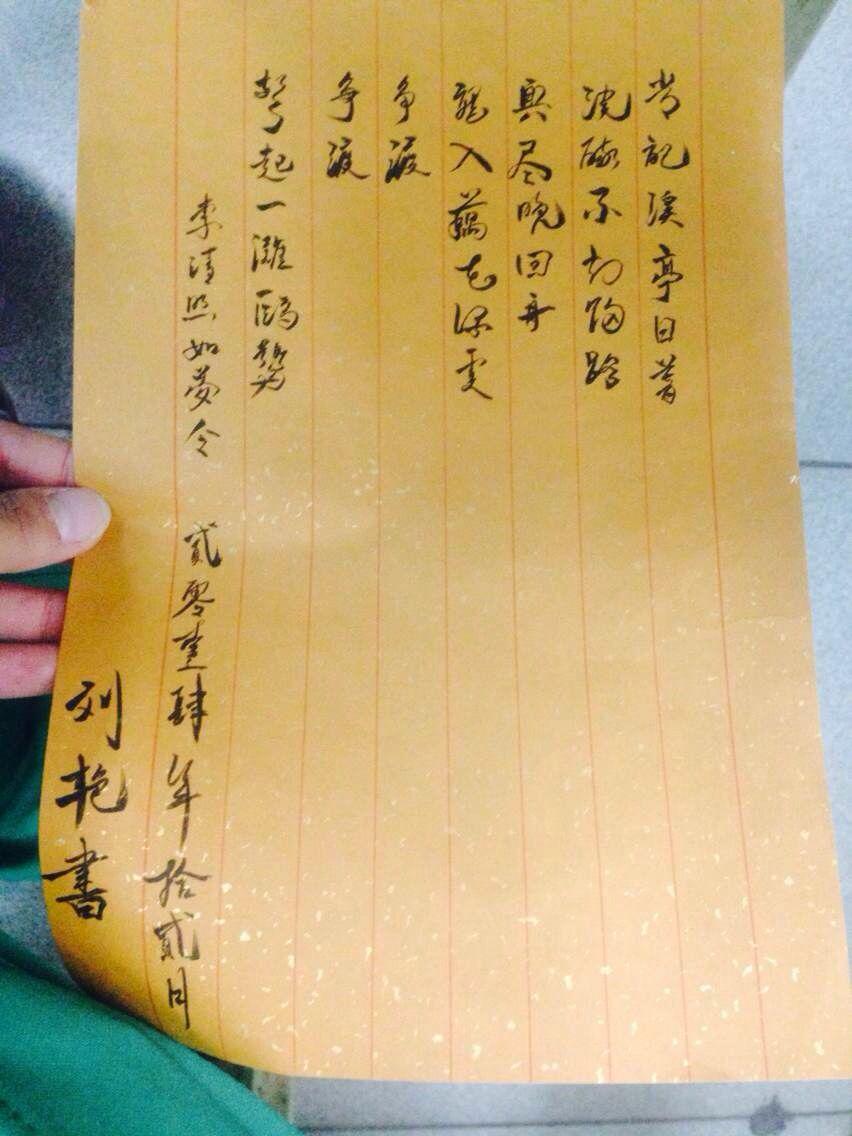 常記溪亭日暮
沉醉不知歸路
興尽晚回舟
誤入藕花深處
争渡
争渡
驚起一灘鷗鷺
李清照如夢令 貳零壹肆年拾貳月
刘艳書